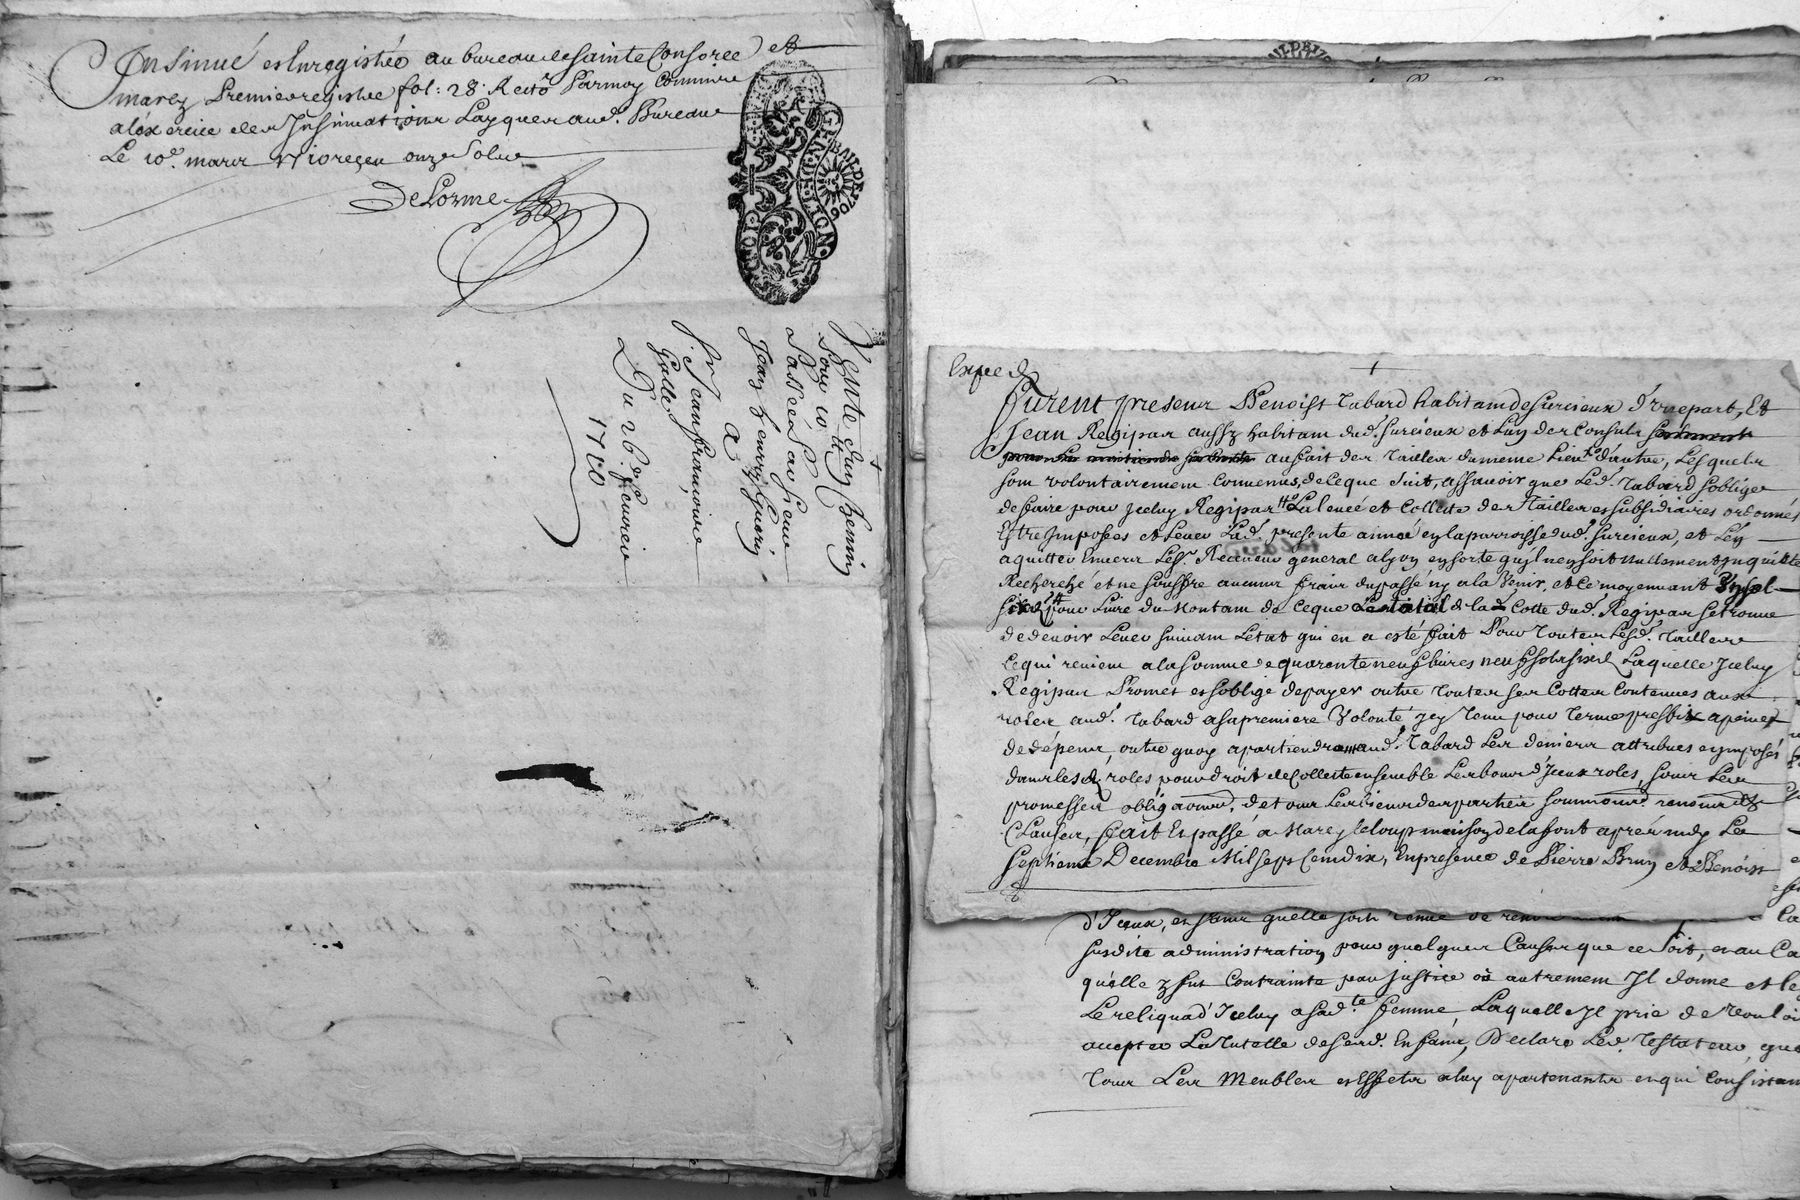 Insinué et Enregistrée au bureau de Sainte Consorce et
marcy Premier registre fol: 28 Recto Par moy Commis
a l'exercice des Insinuations Layques aud. Bureau
Le 10e. mars 1710 reçeu onze Sols
DeLorme
GEN DE LYON
BAIL DE 1706
Vente d'un Chemin
pour 10 tt
Passée par sieur
Jean henry Guerin
A
Sr. Jean francoise
Galle
Du 26e. fevrier
1710
Expeé
furent presens Benoist Tabard habitam de Surcieux d'une part, Et
Jean Regipas aussy habitam dud. Surcieux et L'un des Consuls
au fait des Tailles du meme Lieu d'autre, Lesquels
som volontairemem Convenus, de Ce que Suit, assavoir que Led. Tabard s'oblige
de faire pour jceluy Regipas La Levée et Collecte des Tailles et subsidiaires ordonnés
Estre Imposées et Levées Lad. presente année en la parroisse dud. Surcieux, et L'en
aquitter Envers Les. Receveur general a lyon en sorte qu'il n'en soit nullement Inquiété
Recherché et ne souffre aucuns frais du passé ny a la Venir, et Ce moyennant
pour Livre du Montam de Ceque de la Cotte dud. Regipas se trouve
de devoir Lever suivam L'etat qui en a esté fait Pour Toutes Lesd. Tailles
Ce qui reviem a la Somme de quarente neuf livres neuf sols six d. Laquelle Jceluy
Regipas Promet et s'oblige de payer outre Toutes ses Cottes Contenues aux
roles aud. Tabard a sa premiere Volonté Icy Tenu pour Terme prefix a peine
de dépens, outre quoy apartiendrom aud. Tabard Les deniers attribués et imposés
dans lesd. roles pour droit de Collecte ensemble Les bons d'Jceux roles, sous Les
promesses obligaoms. et Tous Les biens des parties soumoms. renoms. et
Clauses, fait Et passé a Marcy le loup maison de lafont aprés midy Le
septieme Decembre Mil sept Cem dix, En presence de Pierre Brun et Benoist
d'Jceux, et sans quelle soit Tenue de
susdite administration pour quelques Causes que ce Soit, et au Ca
qu'elle y fut Contrainte par justice ou autremem Il donne et le
Le reliqua d'Jceluy a sad.te femme, Laquelle Il prie de Vouloi
accepter La Tutelle de sesd. Enfans, Declare Led. Testateur, que
Tous Les Meubles et Effets a luy apartenants en qui Consistam